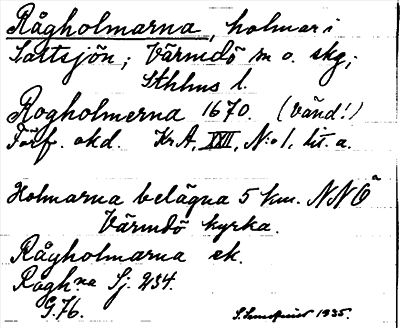 Rågholmarna, holmar i
Saltsjön; Värmdö m o. skg;
Sthlms l.
Rogholmerna 1670. (Vänd!)
Förf. okd. KrA, XXII, N:o 1, lit. a.
Holmarna belägna 5 km. NNÖ
Värmdö kyrka.
Rågholmarna ek.
Rågh:na Sj. 234.
G. 76.
1935.